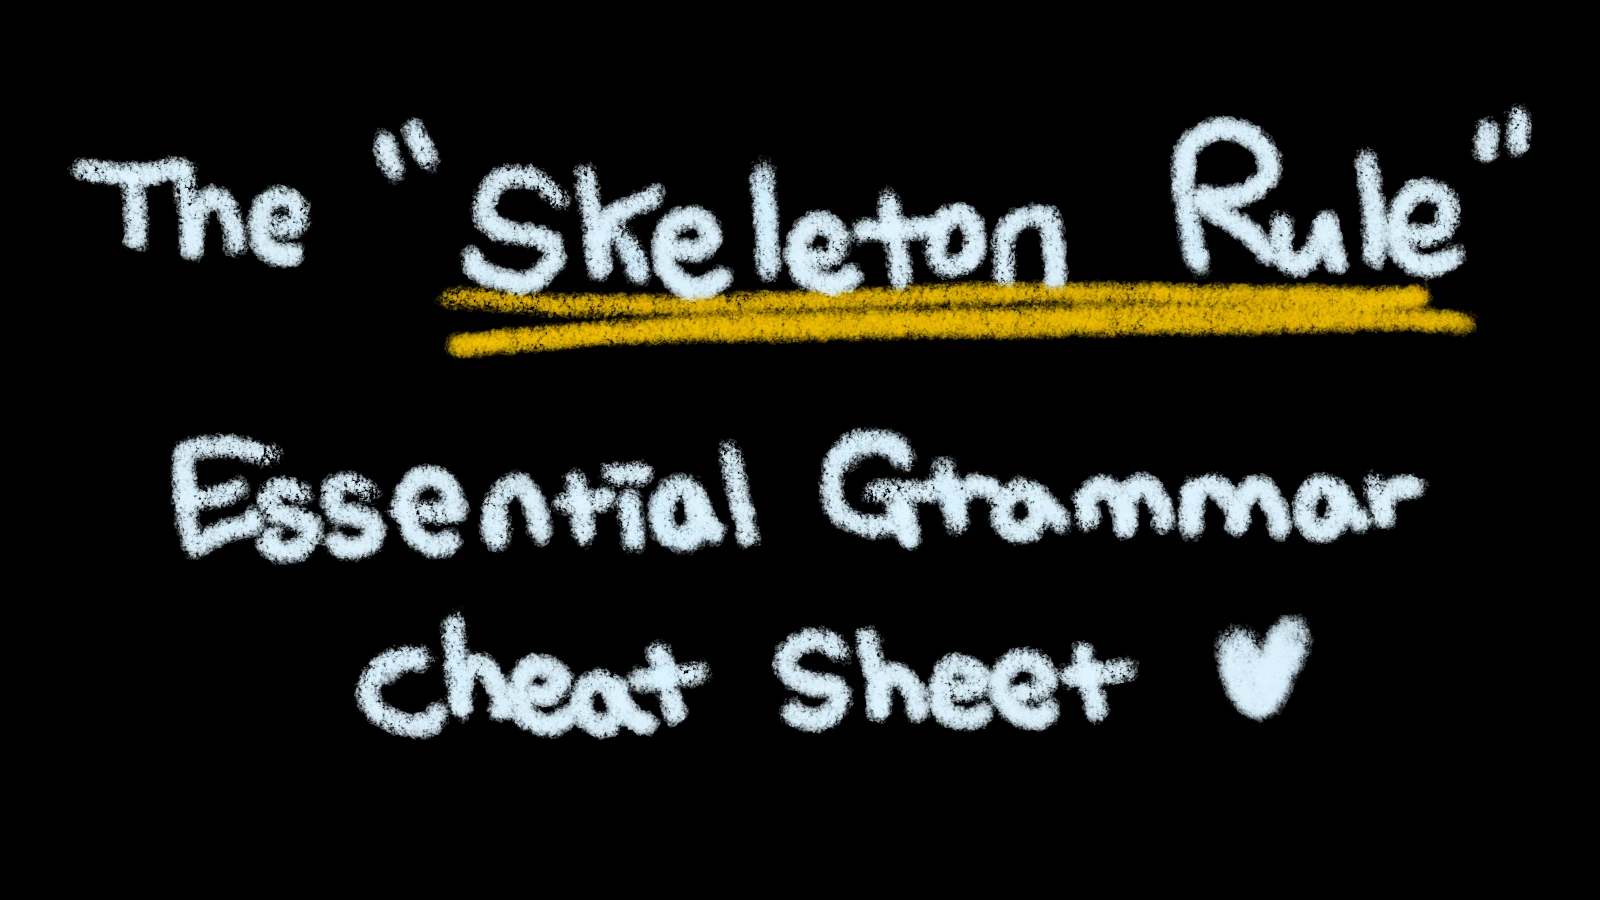 The "Skeleton Rule"
Essential Grammar
Cheat Sheet